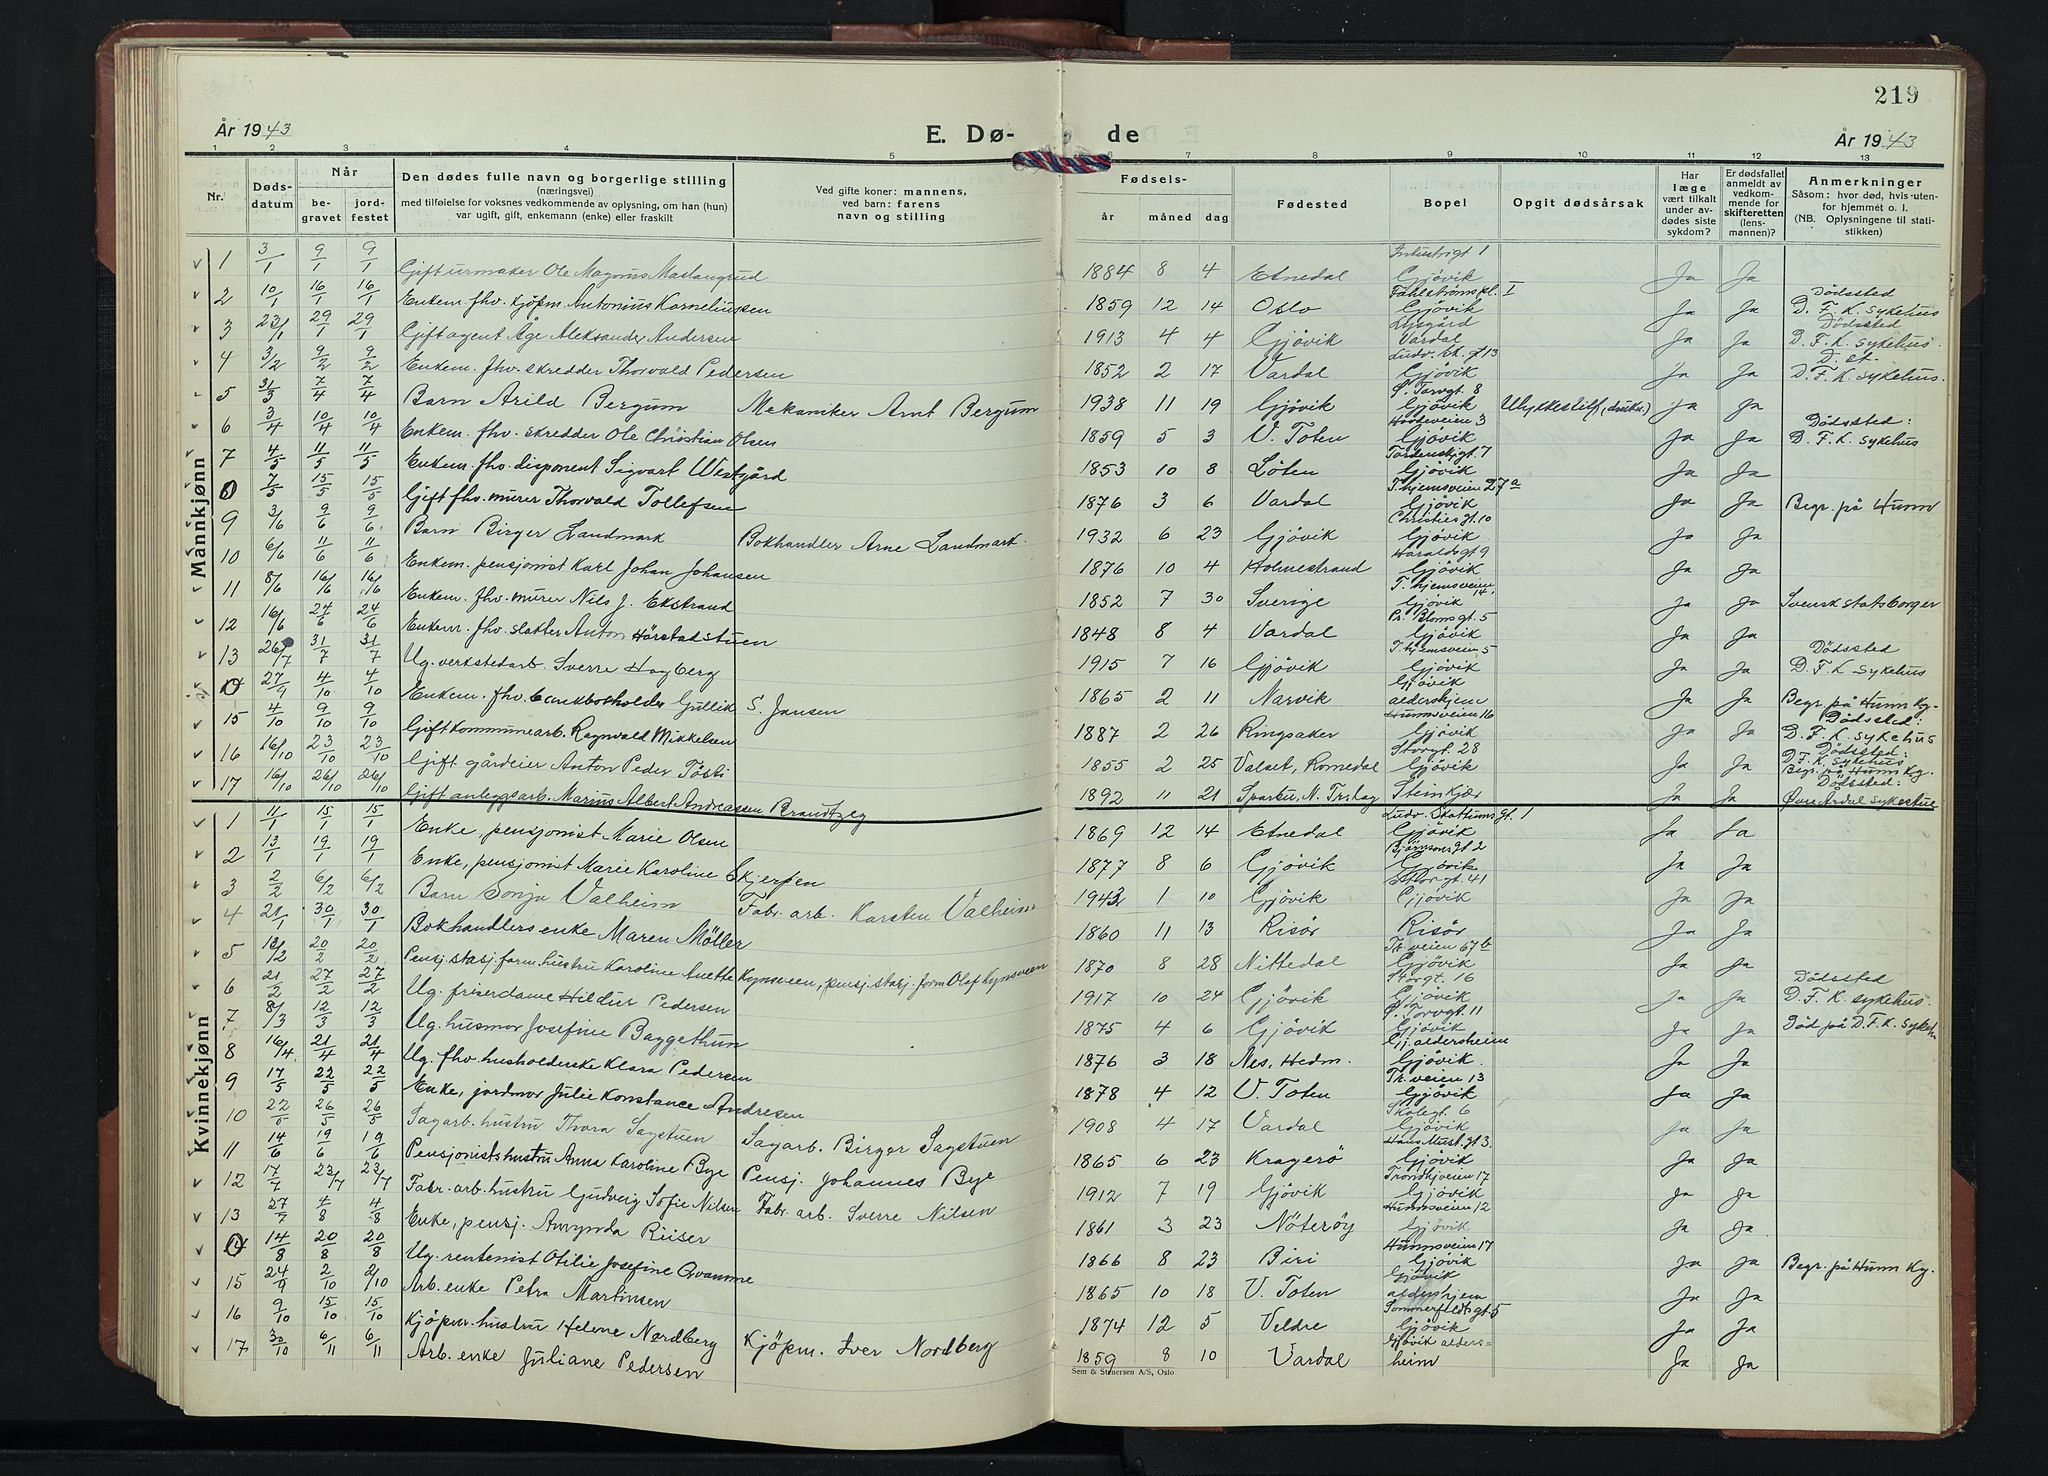 219
År 1943 E. Dø- de År 1943
1 2 3 4 5 6 7 8 9 10 11 12 13
Nr. Døds-datum Når be-gravet jord-festet Den dødes fulle navn og borgerlige stilling (næringsvei) med tilføielse for voksnes vedkommende av oplysning, om han (hun) var ugift, gift, enkemann (enke) eller fraskilt Ved gifte koner: mannens, ved barn: farens navn og stilling Fødsels- år måned dag Fødested Bopel Opgit dødsårsak Har læge vært tilkalt under av-dødes siste sykdom? Er dødsfallet anmeldt av vedkom-mende for skifteretten (lens-mannen)? Anmerkninger Såsom: hvor død, hvis utenfor hjemmet o. l. (NB. Oplysningene til stati-stikken)
Mannkjønn
1 3/1 9/1 9/1 Gift urmaker Ole Magnus Maslangrud 1884 8 4 Etnedal Industrigt 1 Gjövik Ja Ja
2 10/1 16/1 16/1 Enkem. fhv. kjöpm. Antonius Korneliussen 1859 12 14 Oslo Fahlströmspl. I Gjövik Ja Ja Dödssted D. F. K. Sykehus
3 23/1 29/1 29/1 Gift agent Åge Aleksander Andersen 1913 4 4 Gjövik Lysgård Vardal Ja Ja Dödssted D. F. K. Sykehus.
4 3/2 9/2 9/2 Enkem. fhv. skredder Thorvald Pedersen 1852 2 17 Vardal Ludv. Sk. gt 13 Gjövik Ja Ja D. st. D. F. K. Sykehus.
5 31/3 7/4 7/4 Barn Arild Bergum Mekaniker Arnt Bergum 1938 11 19 Gjövik Ö. Torvgt. 8 Gjövik Ulykkestilf. (drukn.) Ja Ja
6 3/4 10/4 10/4 Enkem. fhv. skredder Ole Christian Olsen 1859 5 3 V. Toten 3 Gjövik Ja Ja Dödssted: D. F. K. Sykehus
7 4/5 11/5 11/5 Enkem. fhv. disponent Sigvart Westgård 1853 10 8 Löten Tordenskj.gt. 7 Gjövik Ja Ja
8 7/5 15/5 15/5 Gift fhv. murer Thorvald Tollefsen 1876 3 6 Vardal T. hjemsveien 27 a Gjövik Ja Ja Begr. på Hunn
9 3/6 9/6 9/6 Barn Birger Landmark Bokhandler Arne Landmark. 1932 6 23 Gjövik Christies gt. 10 Gjövik Ja Ja
10 6/6 11/6 11/6 Enkem. pensjonist Karl Johan Johansen 1876 10 4 Holmestrand Haralds gt 9 Gjövik Ja Ja
11 8/6 16/6 16/6 Enkem. fhv. murer Nils J. Ekstrand 1852 7 30 Sverige T. hjemsveien 14 Gjövik Ja Ja Svensk statsborger
12 16/6 24/6 24/6 Enkem. fhv. slakter Anton Hörstadstuen 1848 8 4 Vardal Pr. Bloms gt. 5 Gjövik Ja Ja
13 26/7 31/7 31/7 Ug. verkstedarb. Sverre Hagberg 1915 7 16 Gjövik T. hjemsveien 5 Gjövik Ja Ja Dödssted D. F. K. Sykehus
14 27/9 4/10 4/10 Enkem. fhv. bankbokholder Gullik S. Jansen 1865 2 11 Narvik Gjövik aldershjem Ja Ja Begr. på Hunn Kg.
15 4/10 9/10 9/10 Gift kommunearb. Ragnvald Mikkelsen 1887 2 26 Ringsaker Hunnsveien 16 Gjövik Ja Ja Dödssted: D. F. K. Sykehus
16 16/10 23/10 23/10 Gift gårdeier Anton Peder Tösti 1855 2 25 Valset, Romedal Storgt. 28 Gjövik Ja Ja Dödssted: D. F. K. Sykehus Begr. på Hunn Kg.
17 16/10 26/10 26/10 Gift anleggsarb. Marius Albert Andreassen Brandtzeg 1892 11 21 Sparbu, N. Tr.lag Steinkjær Ja Ja Dödssted: Övre Årdal sykestue
Kvinnekjønn
1 11/1 15/1 15/1 Enke, pensjonist Marie Olsen 1869 12 14 Etnedal Ludv. Skattums gt. 1 Gjövik Ja Ja
2 13/1 19/1 19/1 Enke, pensjonist Marie Karoline Skjerfen 1877 8 6 Gjövik Björnsons gt 2 Gjövik Ja Ja
3 2/2 6/2 6/2 Barn Sonja Valheim Fabr. arb. Karsten Valheim 1943 1 10 Gjövik Storgt. 41 Gjövik Ja Ja
4 21/1 30/1 30/1 Bokhandlers enke Maren Möller 1860 11 13 Risör Risör Ja Ja
5 13/2 20/2 20/2 Pensj. stasj. form. hustru Karoline Anette Kynsveen, pensj. stasj. form Olaf Kynsveen 1870 8 28 Nittedal Tr. veien 67 b Gjövik Ja Ja
6 21/2 27/2 27/2 Ug. friserdame Hildur Pedersen 1917 10 24 Gjövik Storgt. 16 Gjövik Ja Ja Dödssted D. F. K. Sykehus.
7 8/3 12/3 12/3 Ug. husmor Josefine Baggethun 1875 4 6 Gjövik Ö. Torvgt. 11 Gjövik Ja Ja Död på D. F. K. Sykeh.
8 16/4 21/4 21/4 Ug. fhv. husholderske Klara Pedersen 1876 3 18 Nes, Hedm. Gj. aldersheim Gjövik Ja Ja
9 17/5 22/5 22/5 Enke, jordmor Julie Konstance Andresen 1878 4 12 V. Toten Tr. veien 13 Gjövik Ja Ja
10 22/5 26/5 26/5 Sagarb. hustru Thora Sagstuen Sagarb. Birger Sagstuen 1908 4 17 Vardal Skolegt. 6 Gjövik Ja Ja
11 14/6 19/6 19/6 Pensjonists hustru Anna Karoline Bye Pensj. Johannes Bye 1865 6 23 Kragerö Hans Must. gt 3. Gjövik Ja Ja
12 17/7 23/7 23/7 Fabr. arb. hustru Gudveig Sofie Nilsen Fabr. arb. Sverre Nilsen 1912 7 19 Gjövik Trondhjveien 17 Gjövik Ja Ja
13 27/7 4/8 4/8 Enke, pensj. Amynda Riiser 1861 3 23 Nöteröy Hunnsveien 12 Gjövik Ja Ja
14 14/8 20/8 20/8 Ug. rentenist Otilie Josefine Qvamme 1866 8 23 Biri Hunnsveien 17 Gjövik Ja Ja Begr. på Hunn Kg.
15 24/9 2/10 2/10 Arb. enke Petra Martinsen 1865 10 18 V. Toten Gjövik aldershjem Ja Ja
16 9/10 15/10 15/10 Kjöpm. hustru Helene Nordberg Kjöpm. Iver Nordberg 1874 12 5 Veldre Sommerfeldts gt. 5 Gjövik Ja Ja
17 30/10 6/11 6/11 Arb. enke Juliane Pedersen 1859 8 10 Vardal Gjövik alders-heim Ja Ja
Sem & Stenersen A/S, Oslo